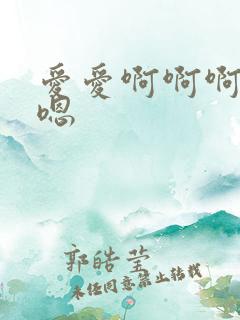 爱爱啊啊啊
嗯
郭皓莹
未经同意禁止转载